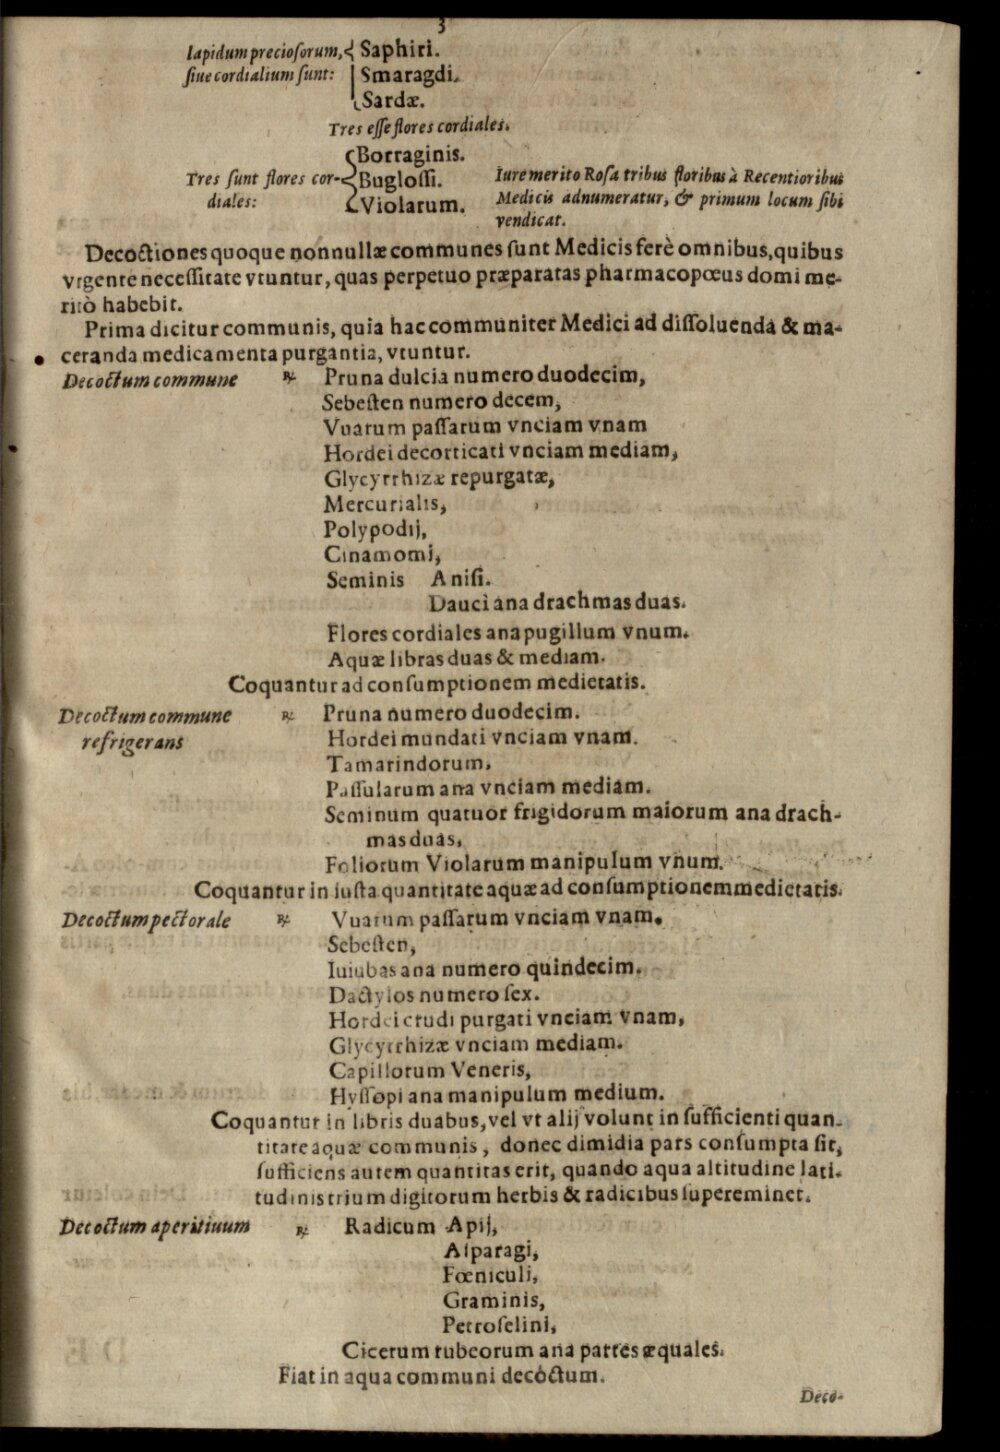 3
lapidum precioſorum, Saphiri.
ſiue cordialium ſunt: Smaragdi.
Sardæ.
Tres eſſe flores cordiales.
Borraginis.
Tres ſunt flores cor- Bugloſſi.
diales: Violarum.
Iure merito Roſa tribus floribus à Recentioribus
Medicis adnumeratur, & primum locum ſibi
vendicat.
Decoctiones quoque nonnullæ communes ſunt Medicis ferè omnibus, quibus
vrgente neceſſitate vtuntur, quas perpetuo præparatas pharmacopœus domi me-
ritò habebit.
Prima dicitur communis, quia hac communiter Medici ad diſſoluenda & ma-
ceranda medicamenta purgantia, vtuntur.
Decoctum commune ℞ Pruna dulcia numero duodecim,
Sebeſten numero decem,
Vuarum paſſarum vnciam vnam
Hordei decorticati vnciam mediam,
Glycyrrhizæ repurgatæ,
Mercurialis,
Polypodij,
Cinamomi,
Seminis Aniſi.
Dauci ana drachmas duas.
Flores cordiales ana pugillum vnum.
Aquæ libras duas & mediam.
Coquantur ad conſumptionem medietatis.
Decoctum commune ℞ Pruna numero duodecim.
refrigerans Hordei mundati vnciam vnam.
Tamarindorum,
Paſſularum ana vnciam mediam.
Seminum quatuor frigidorum maiorum ana drach-
mas duas,
Foliorum Violarum manipulum vnum.
Coquantur in iuſta quantitate aquæ ad conſumptionem medietatis.
Decoctum pectorale ℞ Vuarum paſſarum vnciam vnam.
Sebeſten,
Iuiubas ana numero quindecim.
Dactylos numero ſex.
Hordei crudi purgati vnciam vnam,
Glycyrrhizæ vnciam mediam.
Capillorum Veneris,
Hyſſopi ana manipulum medium.
Coquantur in libris duabus, vel vt alij volunt in ſufficienti quan-
titate aquæ communis, donec dimidia pars conſumpta ſit,
ſufficiens autem quantitas erit, quando aqua altitudine lati-
tudinis trium digitorum herbis & radicibus ſupereminet.
Decoctum aperitiuum ℞ Radicum Apij,
Aſparagi,
Fœniculi,
Graminis,
Petroſelini,
Cicerum rubeorum ana partes æquales.
Fiat in aqua communi decoctum.
Deco-